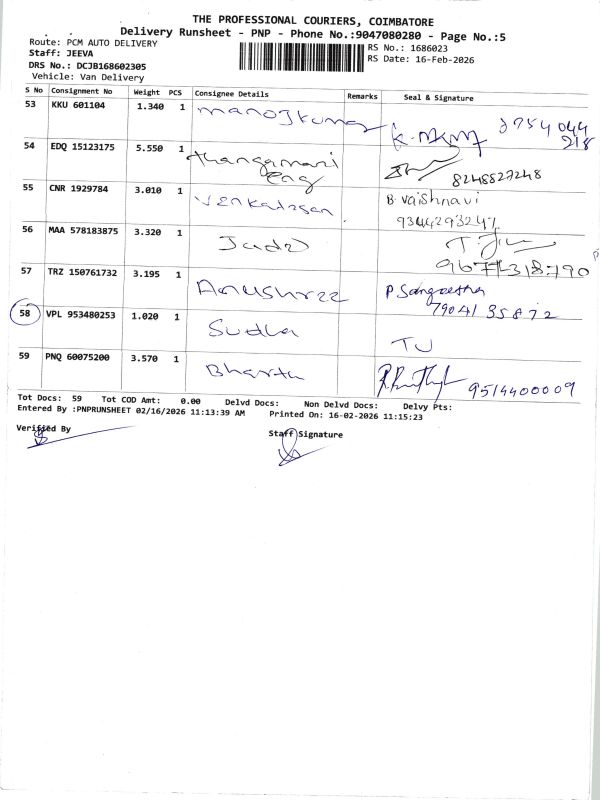 THE PROFESSIONAL COURIERS, COIMBATORE
Delivery Runsheet - PNP - Phone No.:9047080280 - Page No.:5
Route: PCM AUTO DELIVERY
Staff: JEEVA
DRS No.: DCJB168602305
Vehicle: Van Delivery
RS No.: 1686023
RS Date: 16-Feb-2026
S No Consignment No Weight PCS Consignee Details Remarks Seal & Signature
53 KKU 601104 1.340 1 manojkumar
54 EDQ 15123175 5.550 1 thangamani Eng 8248827248
55 CNR 1929784 3.010 1 Venkatesan B. Vaishnavi 9344293247
56 MAA 578183875 3.320 1
57 TRZ 150761732 3.195 1 Anushree P Sangeetha 79041 35872
58 VPL 953480253 1.020 1 Sudha TU
59 PNQ 60075200 3.570 1 9514400009
Tot Docs: 59 Tot COD Amt: 0.00 Delvd Docs: Non Delvd Docs: Delvy Pts:
Entered By :PNPRUNSHEET 02/16/2026 11:13:39 AM Printed On: 16-02-2026 11:15:23
Verified By Staff Signature